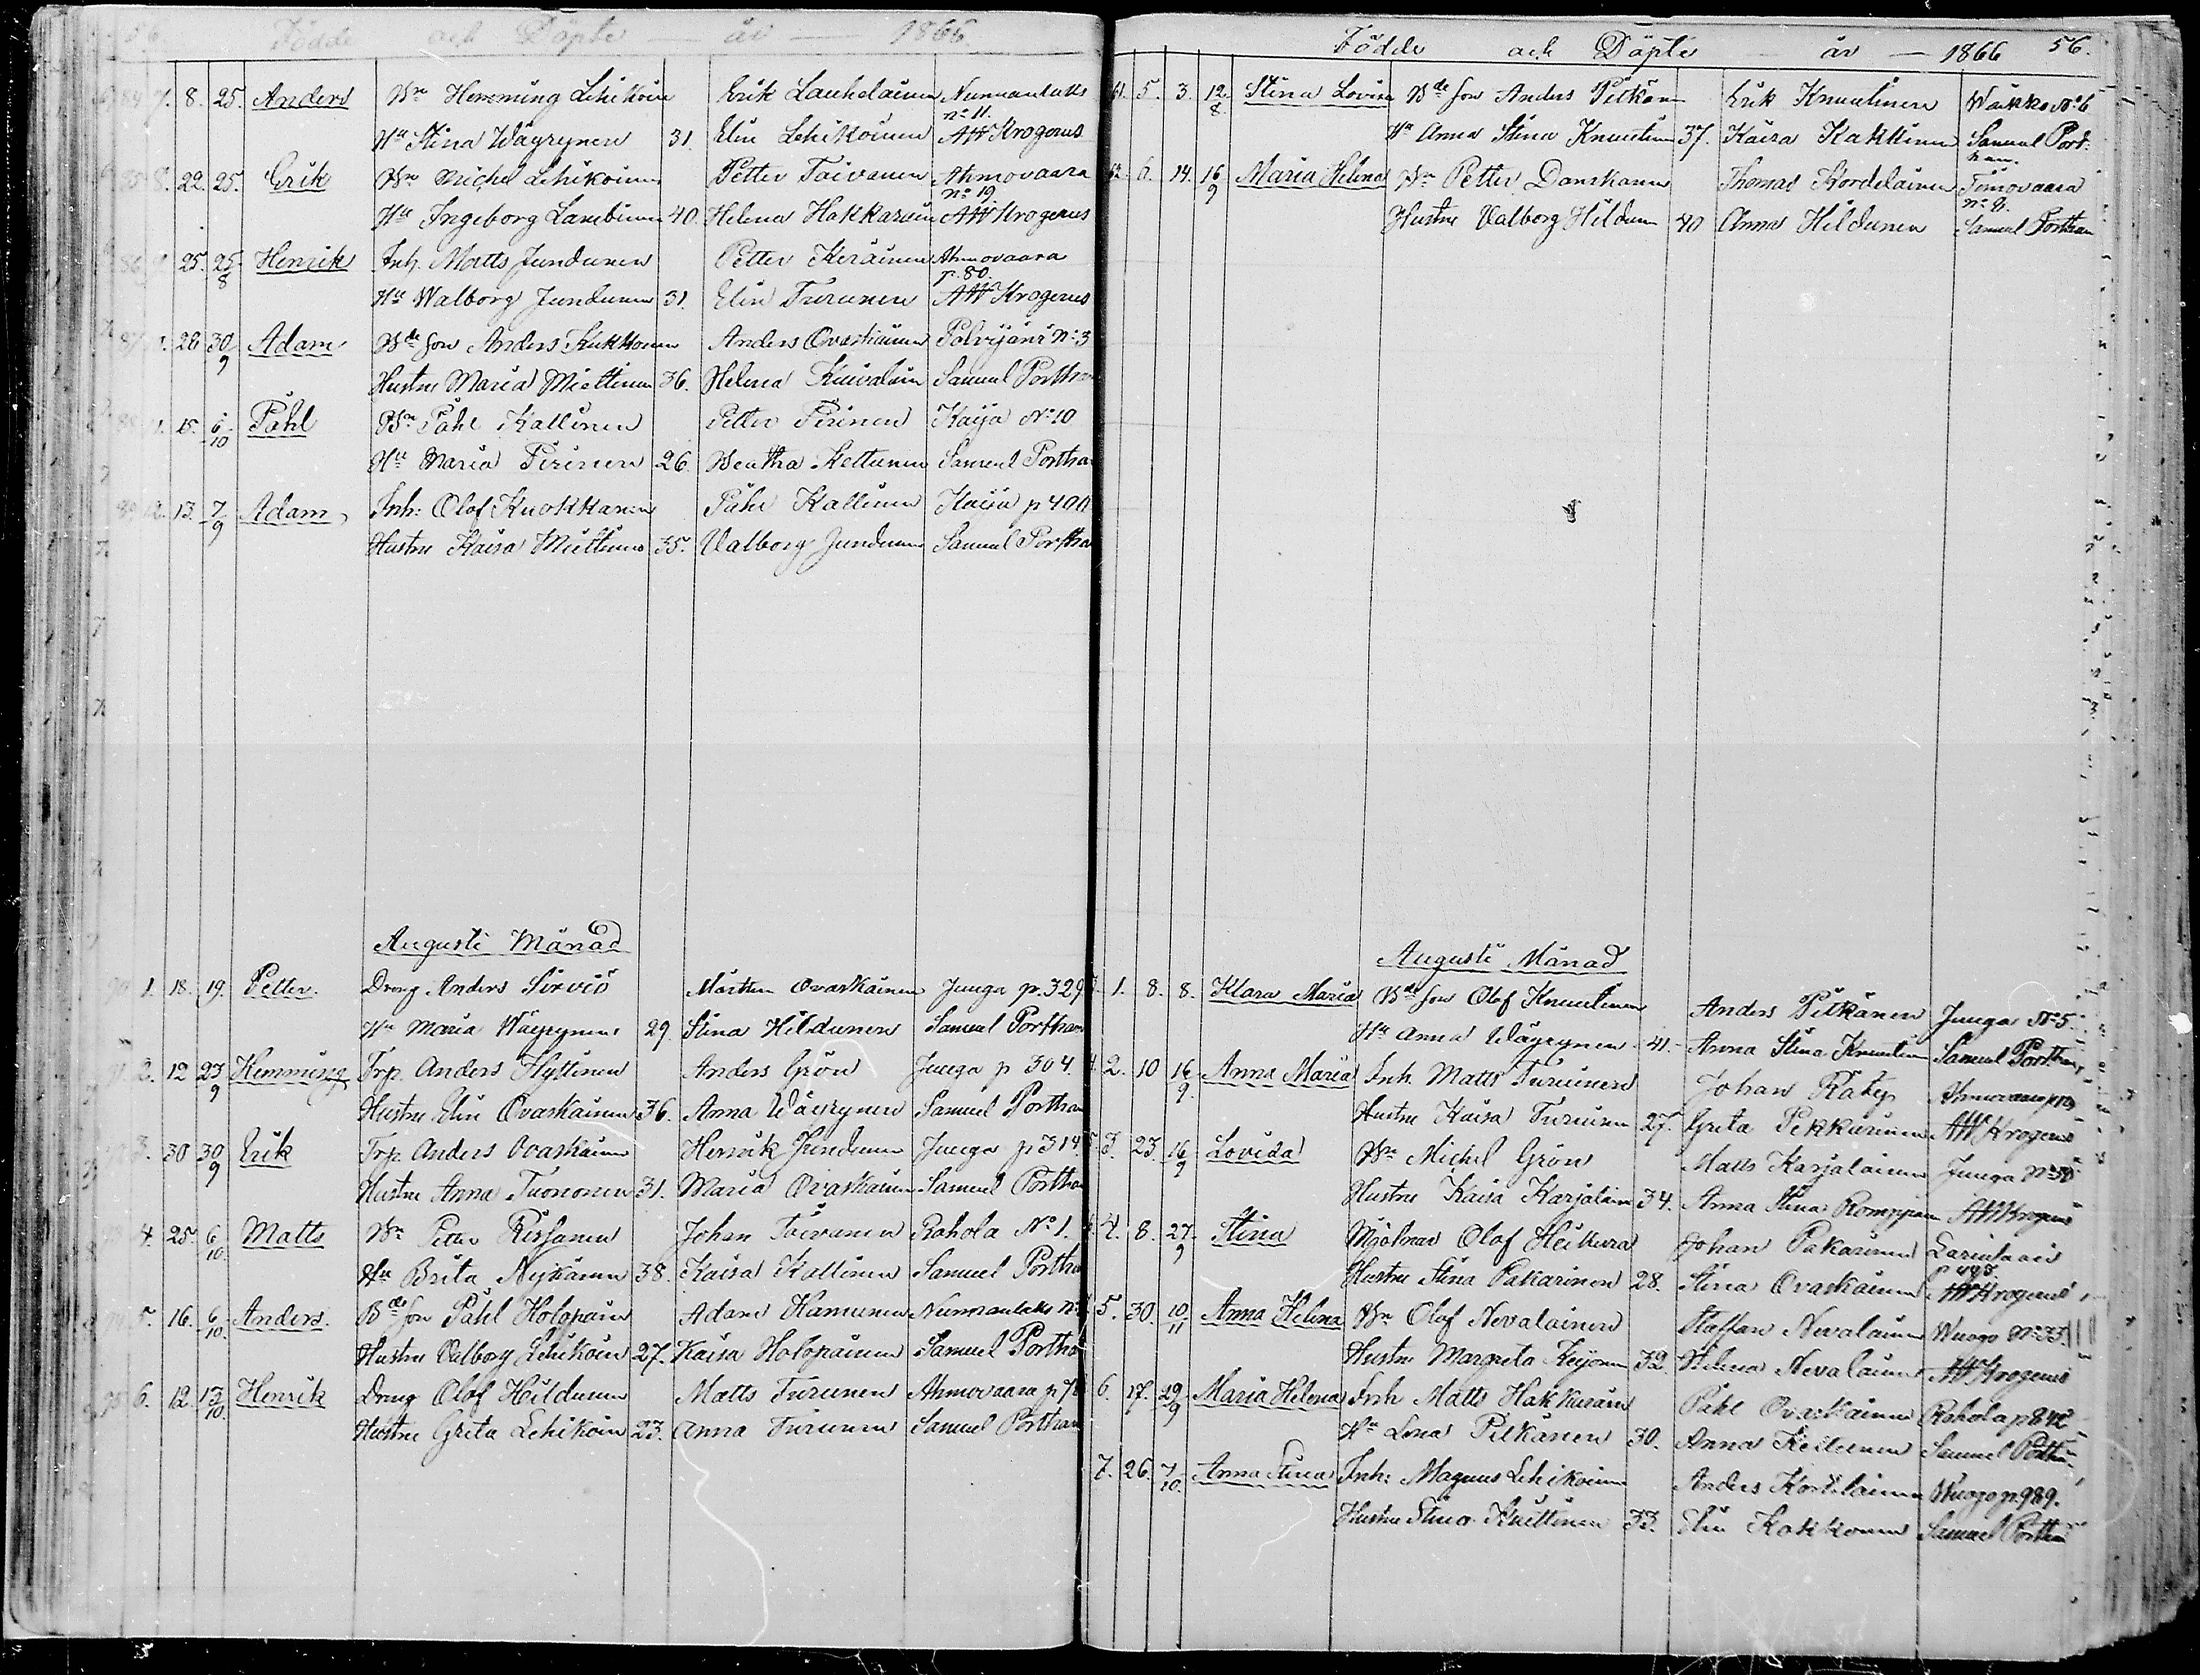 56. Födde och Döpte år — 1866
84 7. 8. 25. Anders Bn Hemming Lehikoin Erik Laukelainen Nunnanlaks
no 11.
Hu Stina Wäyrynen 31. Elin Lehikoinen AW Krogerus
85 8. 22. 25. Erik Bn Michel Lehikoinen Petter Toivanen Ahmovaara
no 19.
Hu Ingeborg Lambinen 40. Helena Hakkarain AW Krogerus
86 25. 25/8 Henrik Inh. Matts Jundunen Petter Keräinen Ahmovaara
p. 80.
Hu Walborg Jundunen 31. Elin Turunen AW Krogerus
87 28 30/9 Adam Bde son Anders Kukkonen Anders Ovaskainen Polvijärvi No 3
Hustru Maria Miettinen 36. Helena Kuivalain Samuel Porthan
88 15. 6/10 Påhl Bn Påhl Kallinen Petter Pirinen Kaija No 10
Hu Maria Pirinen 26. Beatha Kettunen Samuel Porthan
89 12. 13. 7/9 Adam Inh: Olof Kuokkanen Påhl Kallinen Kaija p 400
Hustru Kaisa Miettinen 35. Valborg Jundunen Samuel Porthan
Augusti Månad
1. 18. 19. Petter Dreng Anders Sirviö Mårten Ovaskainen Juuga p. 329
Hu Maria Wäyrynen 29. Stina Hildunen Samuel Porthan
2. 12 23/9 Hemming Trp. Anders Hyttinen Anders Grön Juuga p 304.
Hustru Elin Ovaskainen 36. Anna Wäyrynen Samuel Porthan
3. 30 30/9 Erik Trp. Anders Ovaskainen Henrik Jundunen Juuga p 314
Hustru Anna Tuononen 31. Maria Ovaskainen Samuel Porthan
4. 25. 6/10 Matts Bn Petter Rissanen Johan Toivanen Rahola No 1.
Hu Brita Nykänen 38. Kaisa Kallinen Samuel Porthan
5. 16. 6/10. Anders. Bde son Påhl Holopain Adam Hamunen Nunnanlaks
Hustru Valborg Lehikoin 27. Kaisa Holopainen Samuel Porthan
6. 12. 13/10. Henrik Dreng Olof Hildunen Matts Turunen Ahmovaara
Hustru Greta Lehikoin 23. Anna Turunen Samuel Porthan
Födde och Döpte år — 1866 56.
61. 5. 3. 12/8 Stina Lovisa Bde son Anders Pitkänen Erik Knuutinen Wäkko No 6
Hu Anna Stina Knuutinen 37. Kaisa Kakkinen Samuel Port-
han.
62 6. 14. 16/9 Maria Helena Bn Petter Danskanen Thomas Kordelainen Timovaara
no 9.
Hustru Valborg Hildunen 40 Anna Hildunen Samuel Porthan
Augusti Månad
1. 8. 8. Klara Maria Bde son Olof Knuutinen Anders Pitkänen Juuga No 5.
Hu Anna Wäyrynen 41. Anna Stina Knuutinen Samuel Porthan
2. 10 16/9. Anna Maria Inh. Matts Turunen Johan Ahmovaara
Hustru Kaisa Turunen 27. Greta Pekkarinen AW Krogerus
3. 23. 16/9 Lovisa Bn Michel Grön Matts Karjalainen Juuga
Hustru Kaisa Karjalain 34. Anna Stina Romppan AW Krogerus
4. 8. 27/9 Stina Mjölnar Olof Heikura Johan Pakarinen
Hustru Stina Pakarinen 28. Stina Ovaskainen AW Krogerus
5. 30. 10/11 Anna Helena Bn Olof Nevalainen Staffan Nevalainen Wuogo No 33.
Hustru Margreta Keijonen 32. Helena Nevalainen AW Krogerus
6. 17. 29/9 Maria Helena Inh Matts Hakkarain Påhl Ovaskainen Rahola
Hu Lena Pitkänen 30. Anna Kettunen Samuel Porthan
7. 26. 7/10. Anna Stina Inh: Magnus Lehikoinen Anders Kortelainen Wuogo p. 989.
Hustru Stina 33. Elin Kokkonen Samuel Porthan